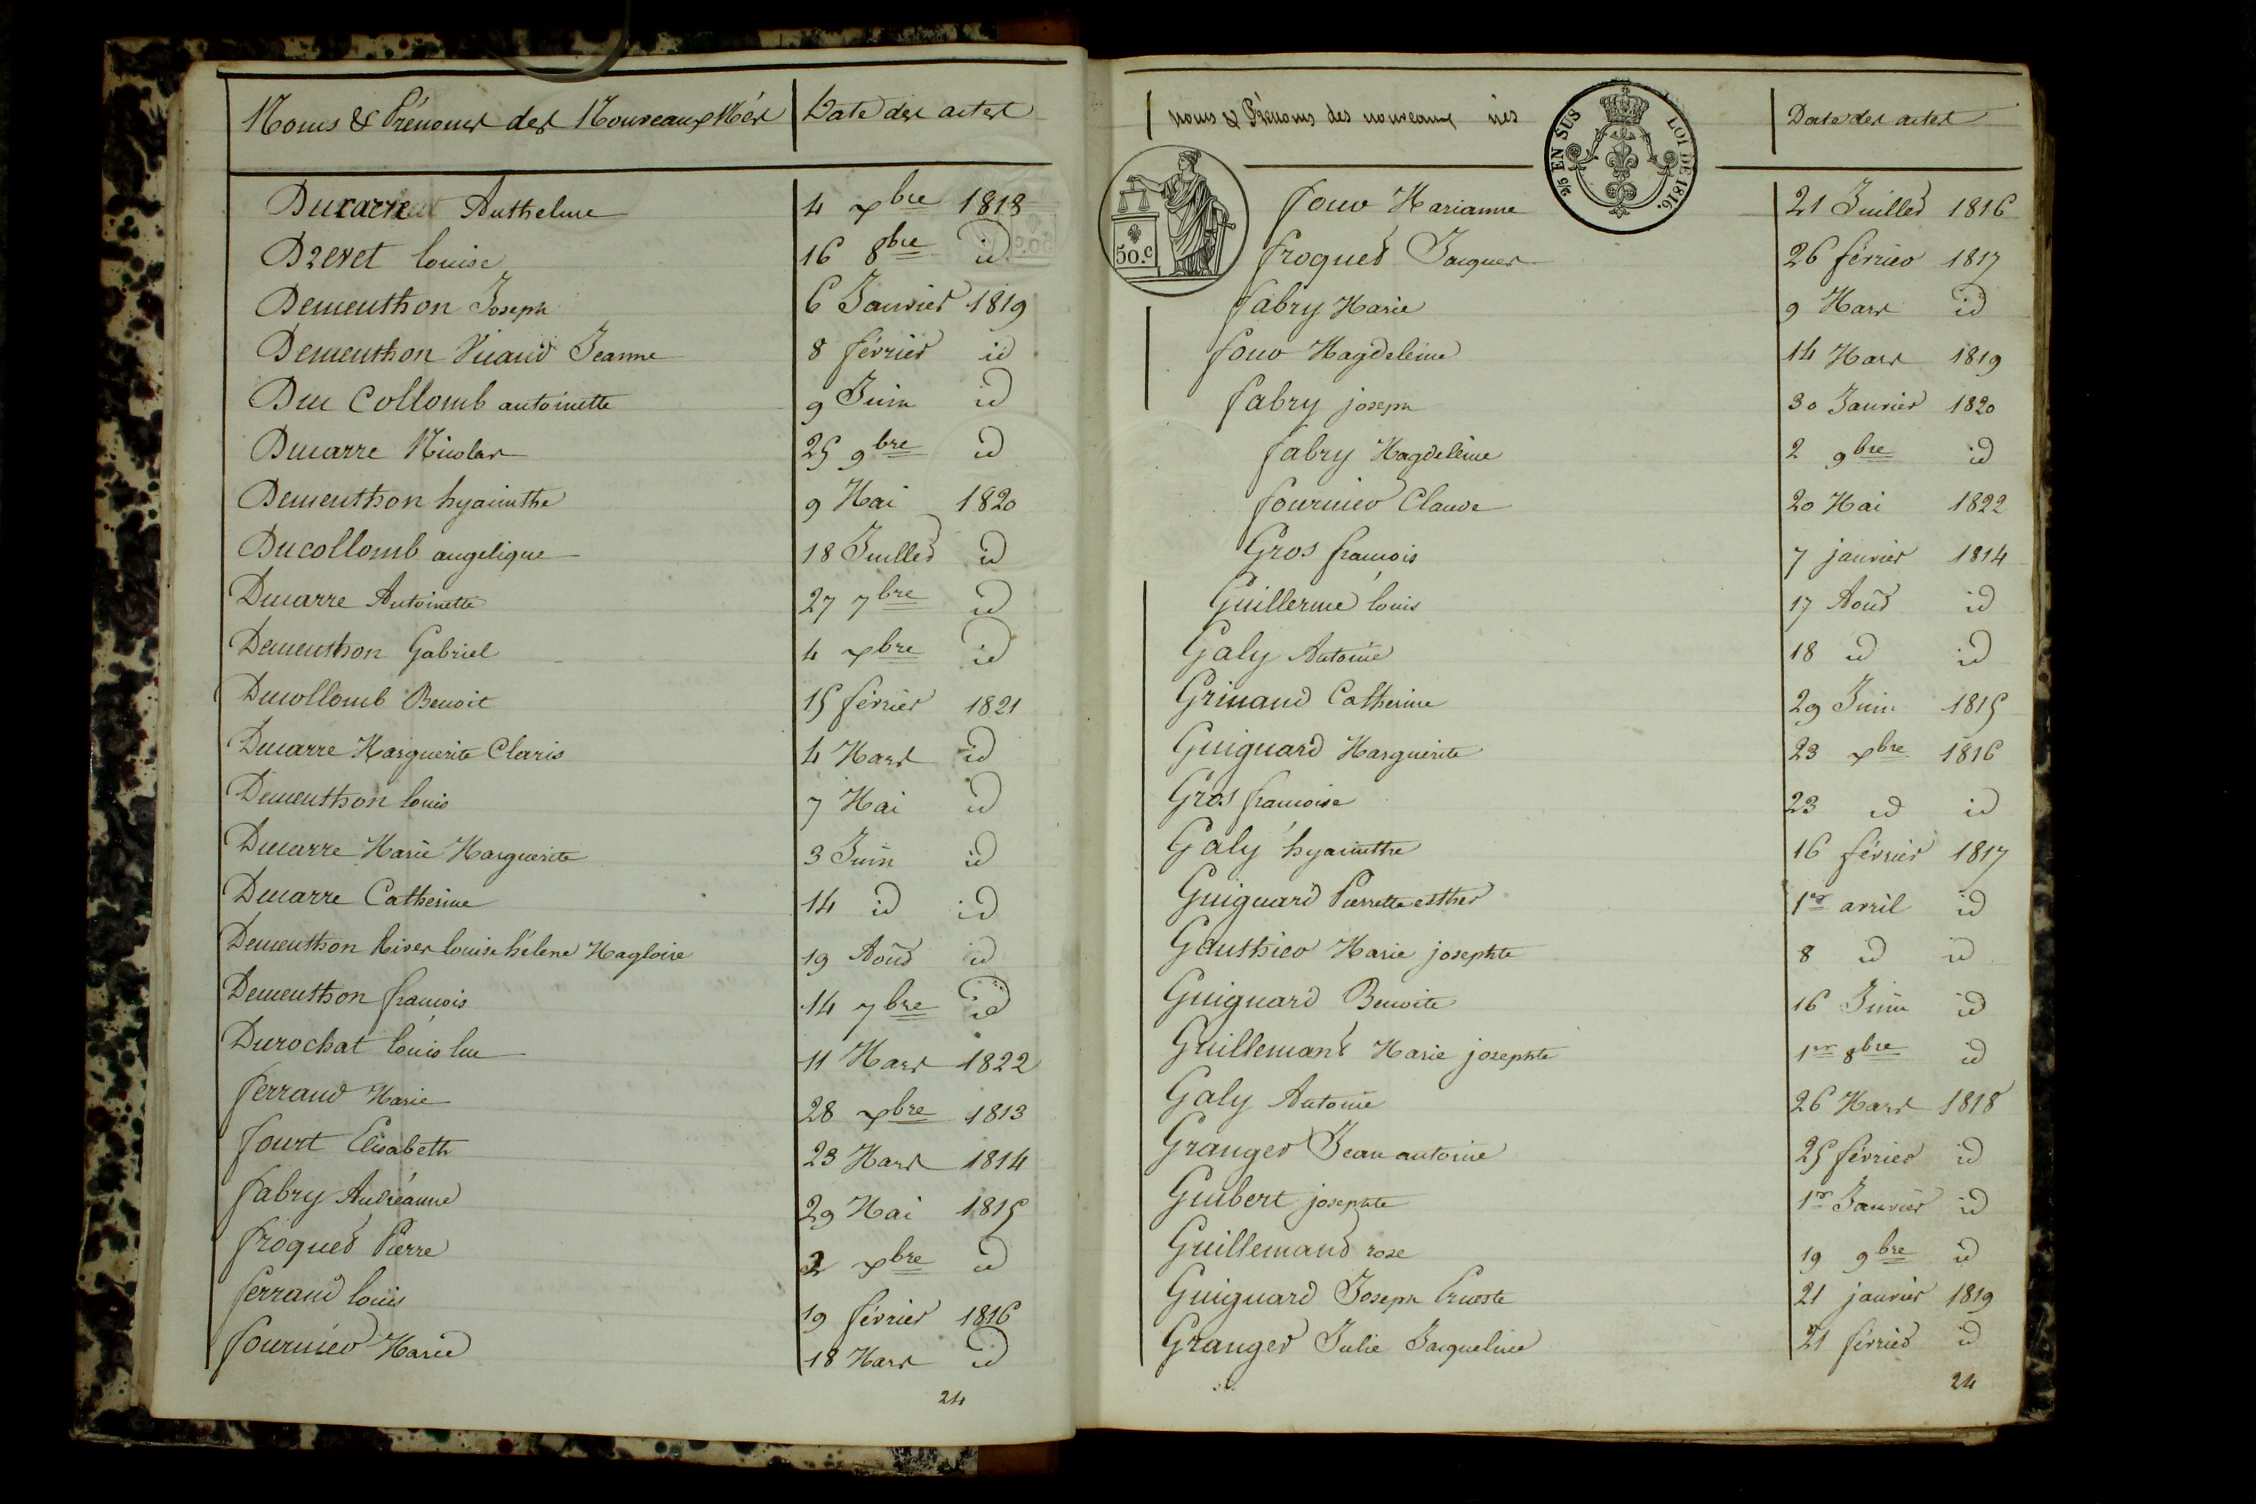 Noms & Prénoms des Nouveaux Nés Date des actes
Ducarre Anthelme 4 xbre 1818
Drevet louise 16 8bre id
Dementhon Joseph 6 Janvier 1819
Dementhon Vuaud Jeanne 8 février id
Du Collomb antoinette 9 Juin id
Ducarre Nicolas 25 9bre id
Dementhon hyacinthe 9 Mai 1820
Ducollomb angelique 18 Juillet id
Ducarre Antoinette 27 7bre id
Dementhon Gabriel 4 xbre id
Ducollomb Benoit 15 février 1821
Ducarre Marguerite Claris 4 Mars id
Dementhon louis 7 Mai id
Ducarre Marie Marguerite 3 Juin id
Ducarre Catherine 14 id id
Dementhon hiver louise hélene Magloire 19 Aout id
Dementhon francois 14 7bre id
Durochat louis luc 11 Mars 1822
ferrand Marie 28 xbre 1813
fourt Elisabeth 23 Mars 1814
fabry Andréanne 29 Mai 1815
froquet Pierre 2 xbre id
ferrand louis 19 février 1816
fournier Marie 18 Mars id
24
noms & Prénoms des nouveaux nés Date des actes
2/5 EN SUS LOI DE 1816.
50.c
four Marianne 21 Juillet 1816
froquet Jacques 26 février 1817
fabry Marie 9 Mars id
four Magdeleine 14 Mars 1819
fabry joseph 30 Janvier 1820
fabry Magdeleine 2 9bre id
fournier Claude 20 Mai 1822
Gros francois 7 janvier 1814
Guillerme louis 17 Aout id
Galy Antoine 18 id id
Grinand Catherine 29 Juin 1815
Guignard Marguerite 23 xbre 1816
Gros francoise 23 id id
Galy hyacinthe 16 février 1817
Guignard Pierrette esther 1er avril id
Gauthier Marie josephte 8 id id
Guignard Benoite 16 Juin id
Guillemant Marie josephte 1er 8bre id
Galy Antoine 26 Mars 1818
Granger Jean antoine 25 février id
Guibert josephte 1er Janvier id
Guillemand rose 19 9bre id
Guignard Joseph 21 janvier 1819
Granger Julie Jacqueline 21 février id
24